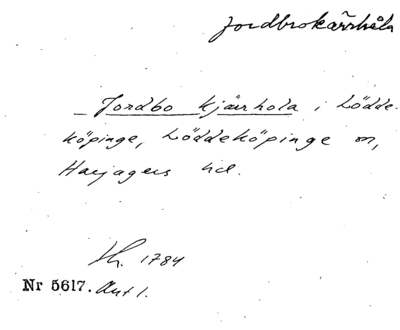 Jordbrokärrhåla
Jordbo kjärrhola i Lödde-
köpinge, Löddeköpinge sn,
Harjagers hd.
1784
Nr 5617. Ant 1.